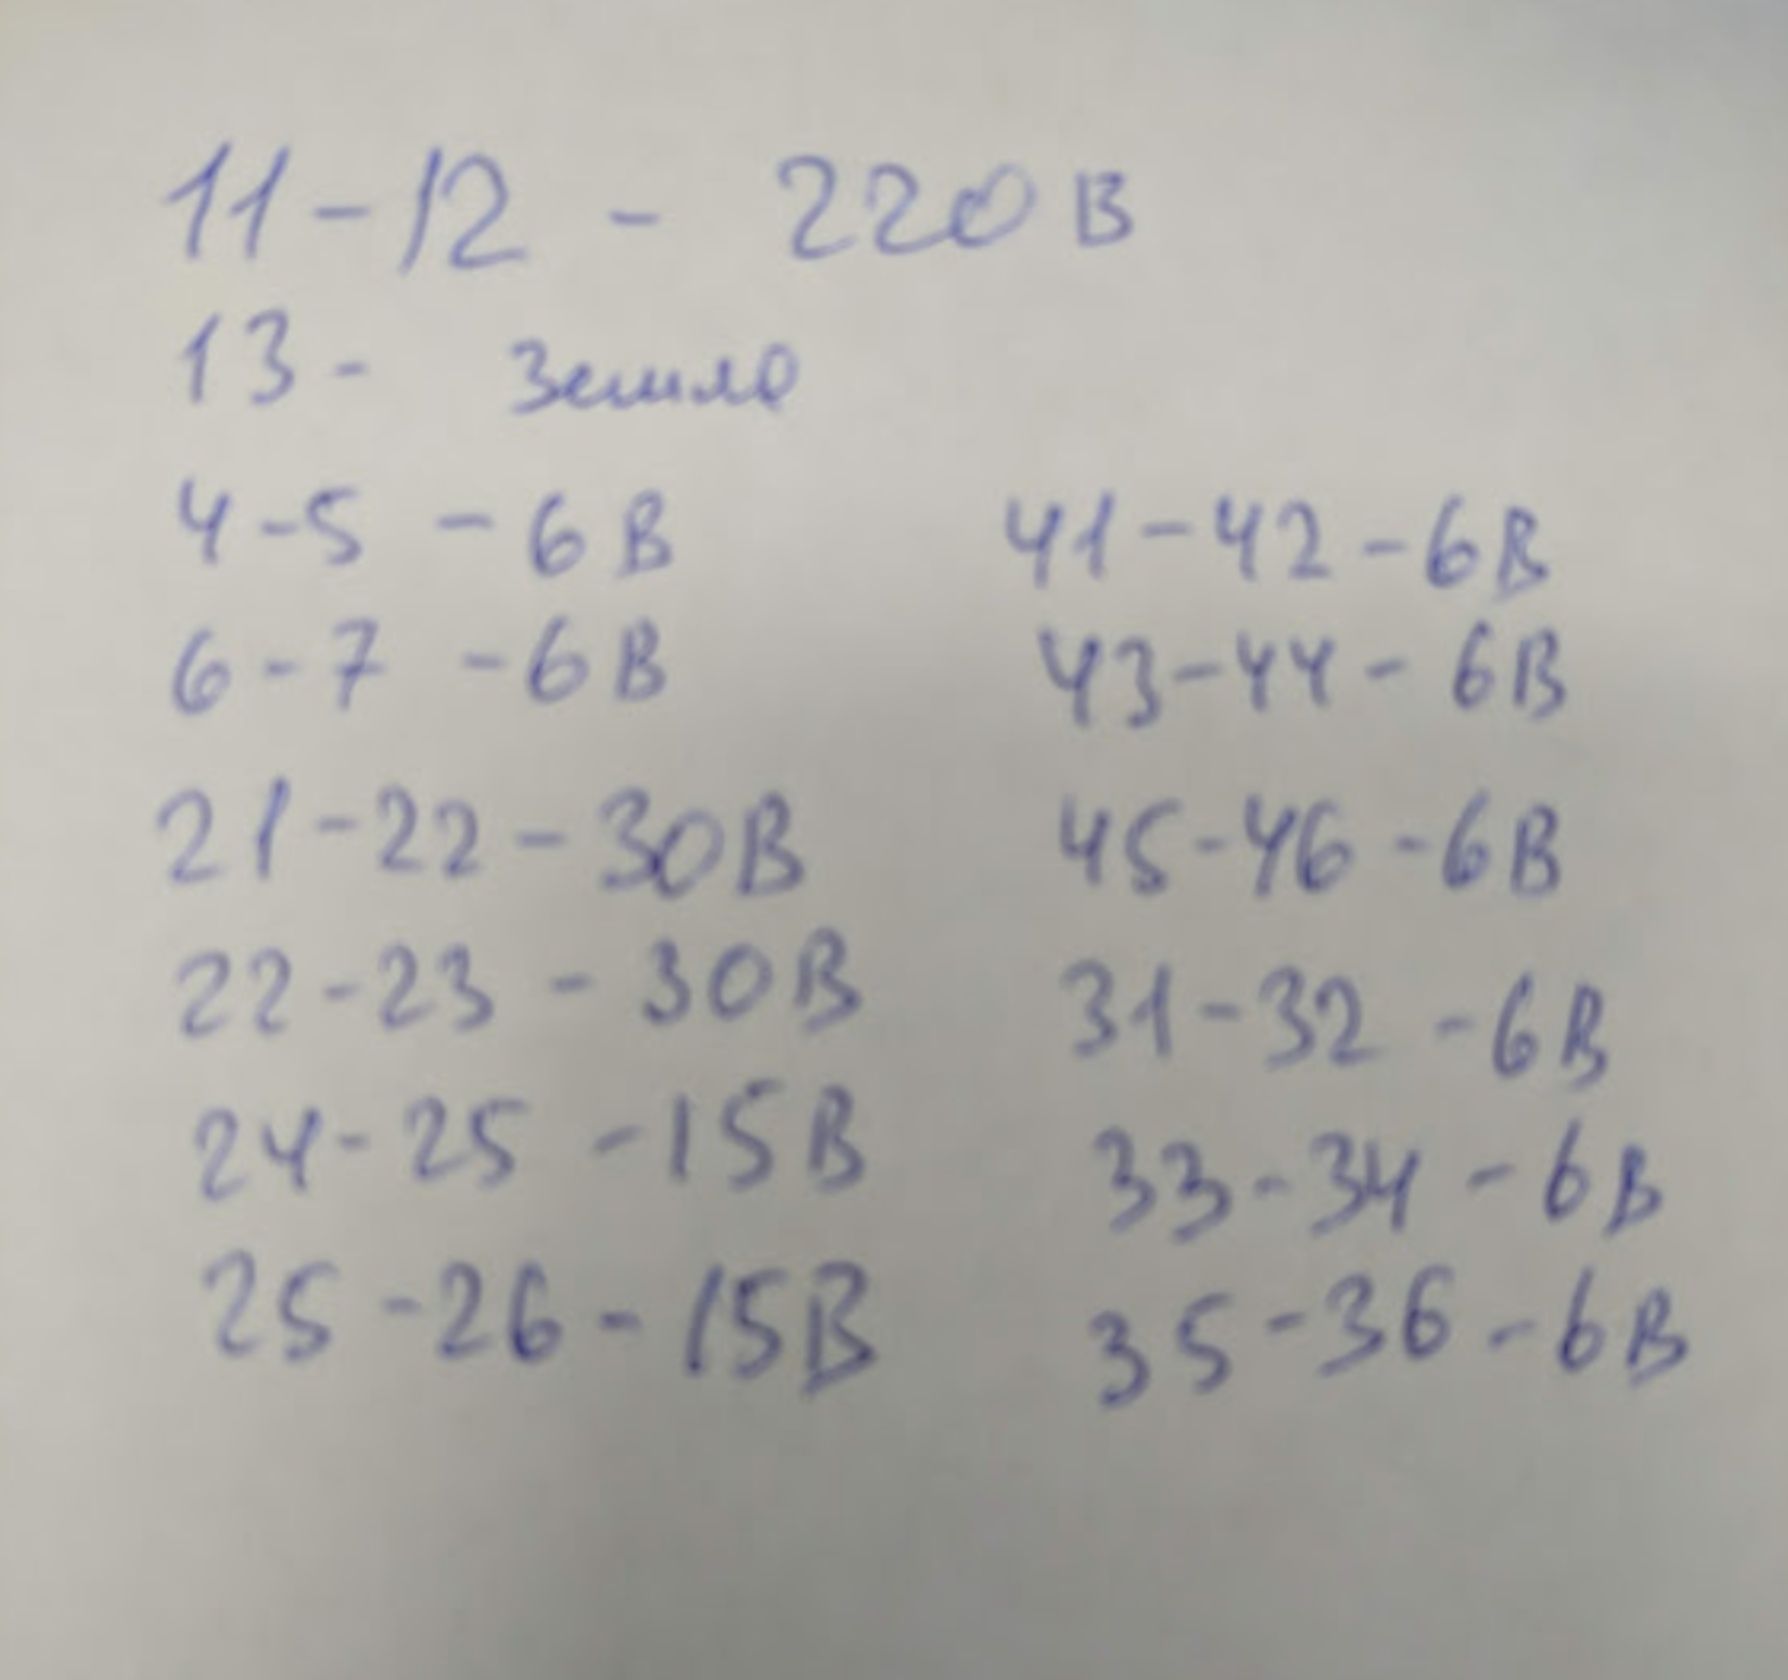 11-12 - 220 В
13- Земля
4-5 - 6 В
6-7 - 6 В
21-22-30В
22-23 - 30В
24-25 -15В
25-26-15В
41-42-6В
43-44- 6В
45-46-6В
31-32 -6В
33-34 - 6В
35-36-6В